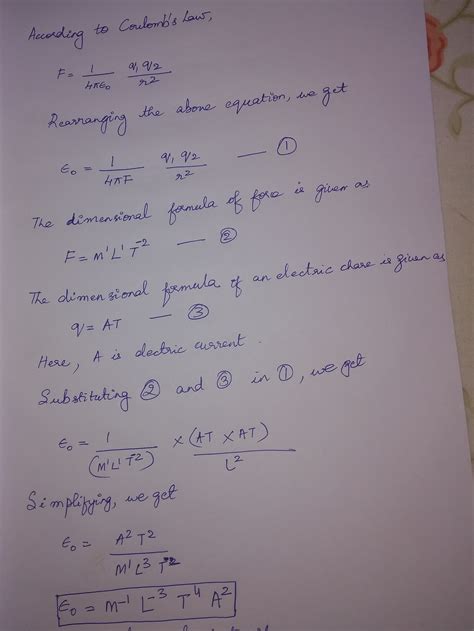 According to Coulomb's Law,
F = 1/4πε₀ q₁ q₂/r²
Rearranging the above equation, we get
ε₀ = 1/4πF q₁ q₂/r² — ①
The dimensional formula of force is given as
F = M¹L¹T⁻² — ②
The dimensional formula of an electric chare is given as
q = AT — ③
Here, A is electric current.
Substituting ② and ③ in ①, we get
ε₀ = 1/(M¹L¹T⁻²) × (AT × AT)/L²
Simplifying, we get
ε₀ = A² T²/M¹ L³ T⁻²
ε₀ = M⁻¹ L⁻³ T⁴ A²